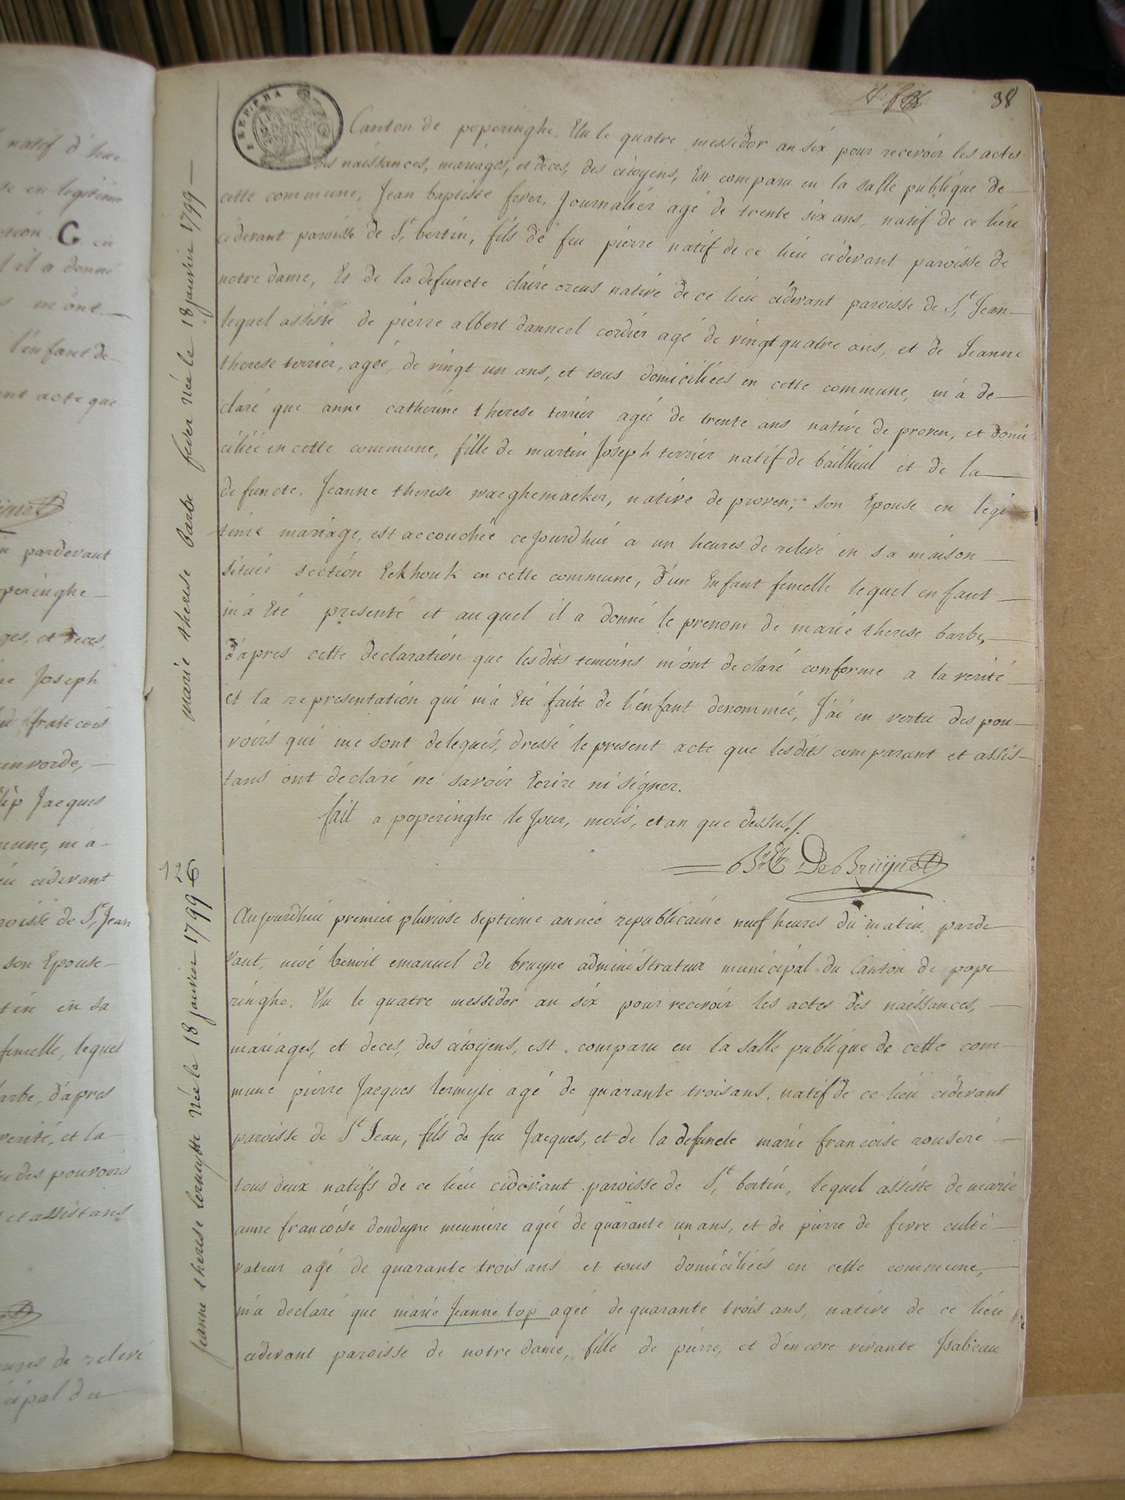 38
Canton de poperinghe. Elu le quatre messidor an six pour recevoir les actes
des naissances, mariages, et deces, des citoyens, Est comparu en la salle publique de
cette commune, Jean baptiste fever, Journalier agé de trente six ans natif de ce lieu
cidevant paroisse de St bertin, fils de feu pierre natif de ce lieu cidevant paroisse de
notre dame, Et de la defuncte claire creus native de ce lieu cidevant paroisse de St Jean
lequel assisté de pierre albert danneel cordier agé de vingt quatre ans, et de Jeanne
therese terrier, agée, de vingt un ans, et tous domiciliées en cette commune, m'a de
claré que anne catherine therese terrier ageé de trente ans native de proven, et domi
ciliée en cette commune, fille de martin Joseph terrier natif de bailleul et de la
defuncte. Jeanne therese waeghemaeker, native de proven, son Epouse en legi
time mariage, est accouchée cejourdhui a un heures de relevé en sa maison
située section Eekhouk en cette commune, d'un Enfant femelle lequel enfant
m'a Eté presenté et auquel il a donné le prenom de marie therese barbe,
d'apres cette declaration que lesdits temoins m'ont declaré conforme a la verité
et la representation qui m'a Eté faite de l'enfant denommée, J'ai en vertu des pou
voirs qui me sont delegués, dressé le present acte que lesdits comparant et assis
tans ont declaré ne savoir Ecrire ni signer.
fait a poperinghe le Jour, mois, et an que dessus./.
De Bruyne
marie therese barbe fever née le 18 janvier 1799
126
Aujourdhui premier pluviose septieme année republicaine neuf heures du matin, parde
vant, moi benoit emanuel de bruyne administrateur municipal du Canton de pope
ringhe. Elu le quatre messidor an six pour recevoir les actes des naissances,
mariages, et deces, des citoyens, est comparu en la salle publique de cette com
mune pierre Jacques lermyte agé de quarante trois ans, natif de ce lieu cidevant
paroisse de St Jean, fils de feu Jacques, et de la defuncte marie francoise rouseré
tous deux natifs de ce lieu cidevant paroisse de St bertin, lequel assisté de marie
anne francoise dondeyne meuniere ageé de quarante un ans, et de pierre de fevre culti
vateur agé de quarante trois ans et tous domiciliées en cette commune,
m'a declaré que marie Jeanne top ageé de quarante trois ans, native de ce lieu
cidevant paroisse de notre dame, fille de pierre, et d'encore vivante Isabeau
Jeanne therese lermytte née le 18 janvier 1799
natif d'
se en legitime
ction G en
il a donné
m'ont
l'enfant de
nt acte que
pardevant
peringhe
ges, et deces,
Joseph
francois
envorde,
Jacques
mune, m'a
cidevant
roisse de St Jean
son Epouse
en sa
femelle, lequel
arbe, d'apres
verité, et la
des pouvoirs
et assistans
de relevé
cipal du